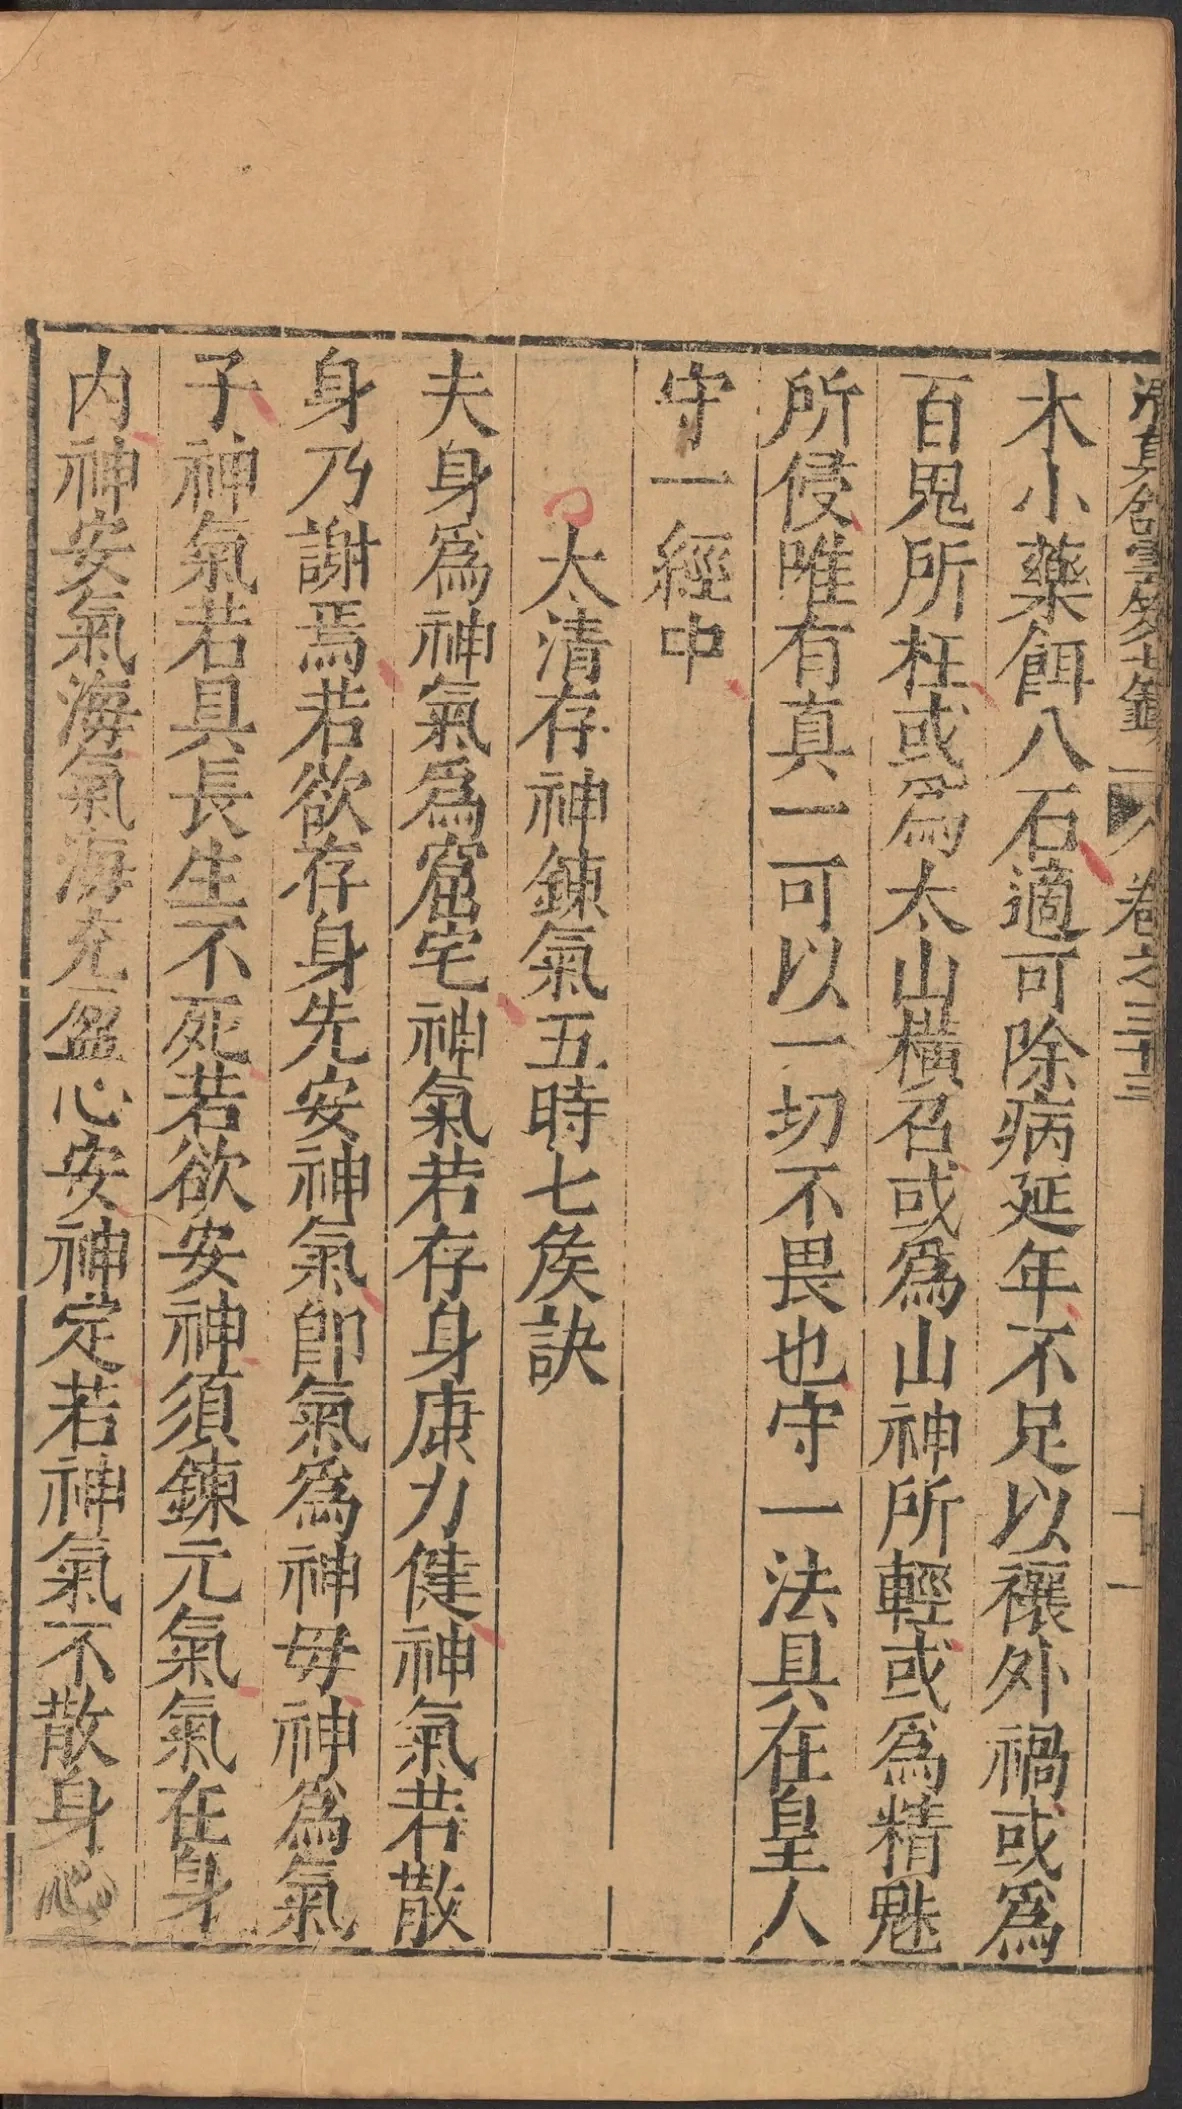 清真館雲笈七籤 卷之三十三 十一
木小藥餌八石適可除病延年不足以禳外禍或爲
百鬼所枉或爲太山橫召或爲山神所輕或爲精魅
所侵唯有真一可以一切不畏也守一法具在皇人
守一經中
太清存神鍊氣五時七候訣
夫身爲神氣爲窟宅神氣若存身康力健神氣若散
身乃謝焉若欲存身先安神氣卽氣爲神母神爲氣
子神氣若具長生不死若欲安神須鍊元氣氣在身
内神安氣海氣海充盈心安神定若神氣不散身心